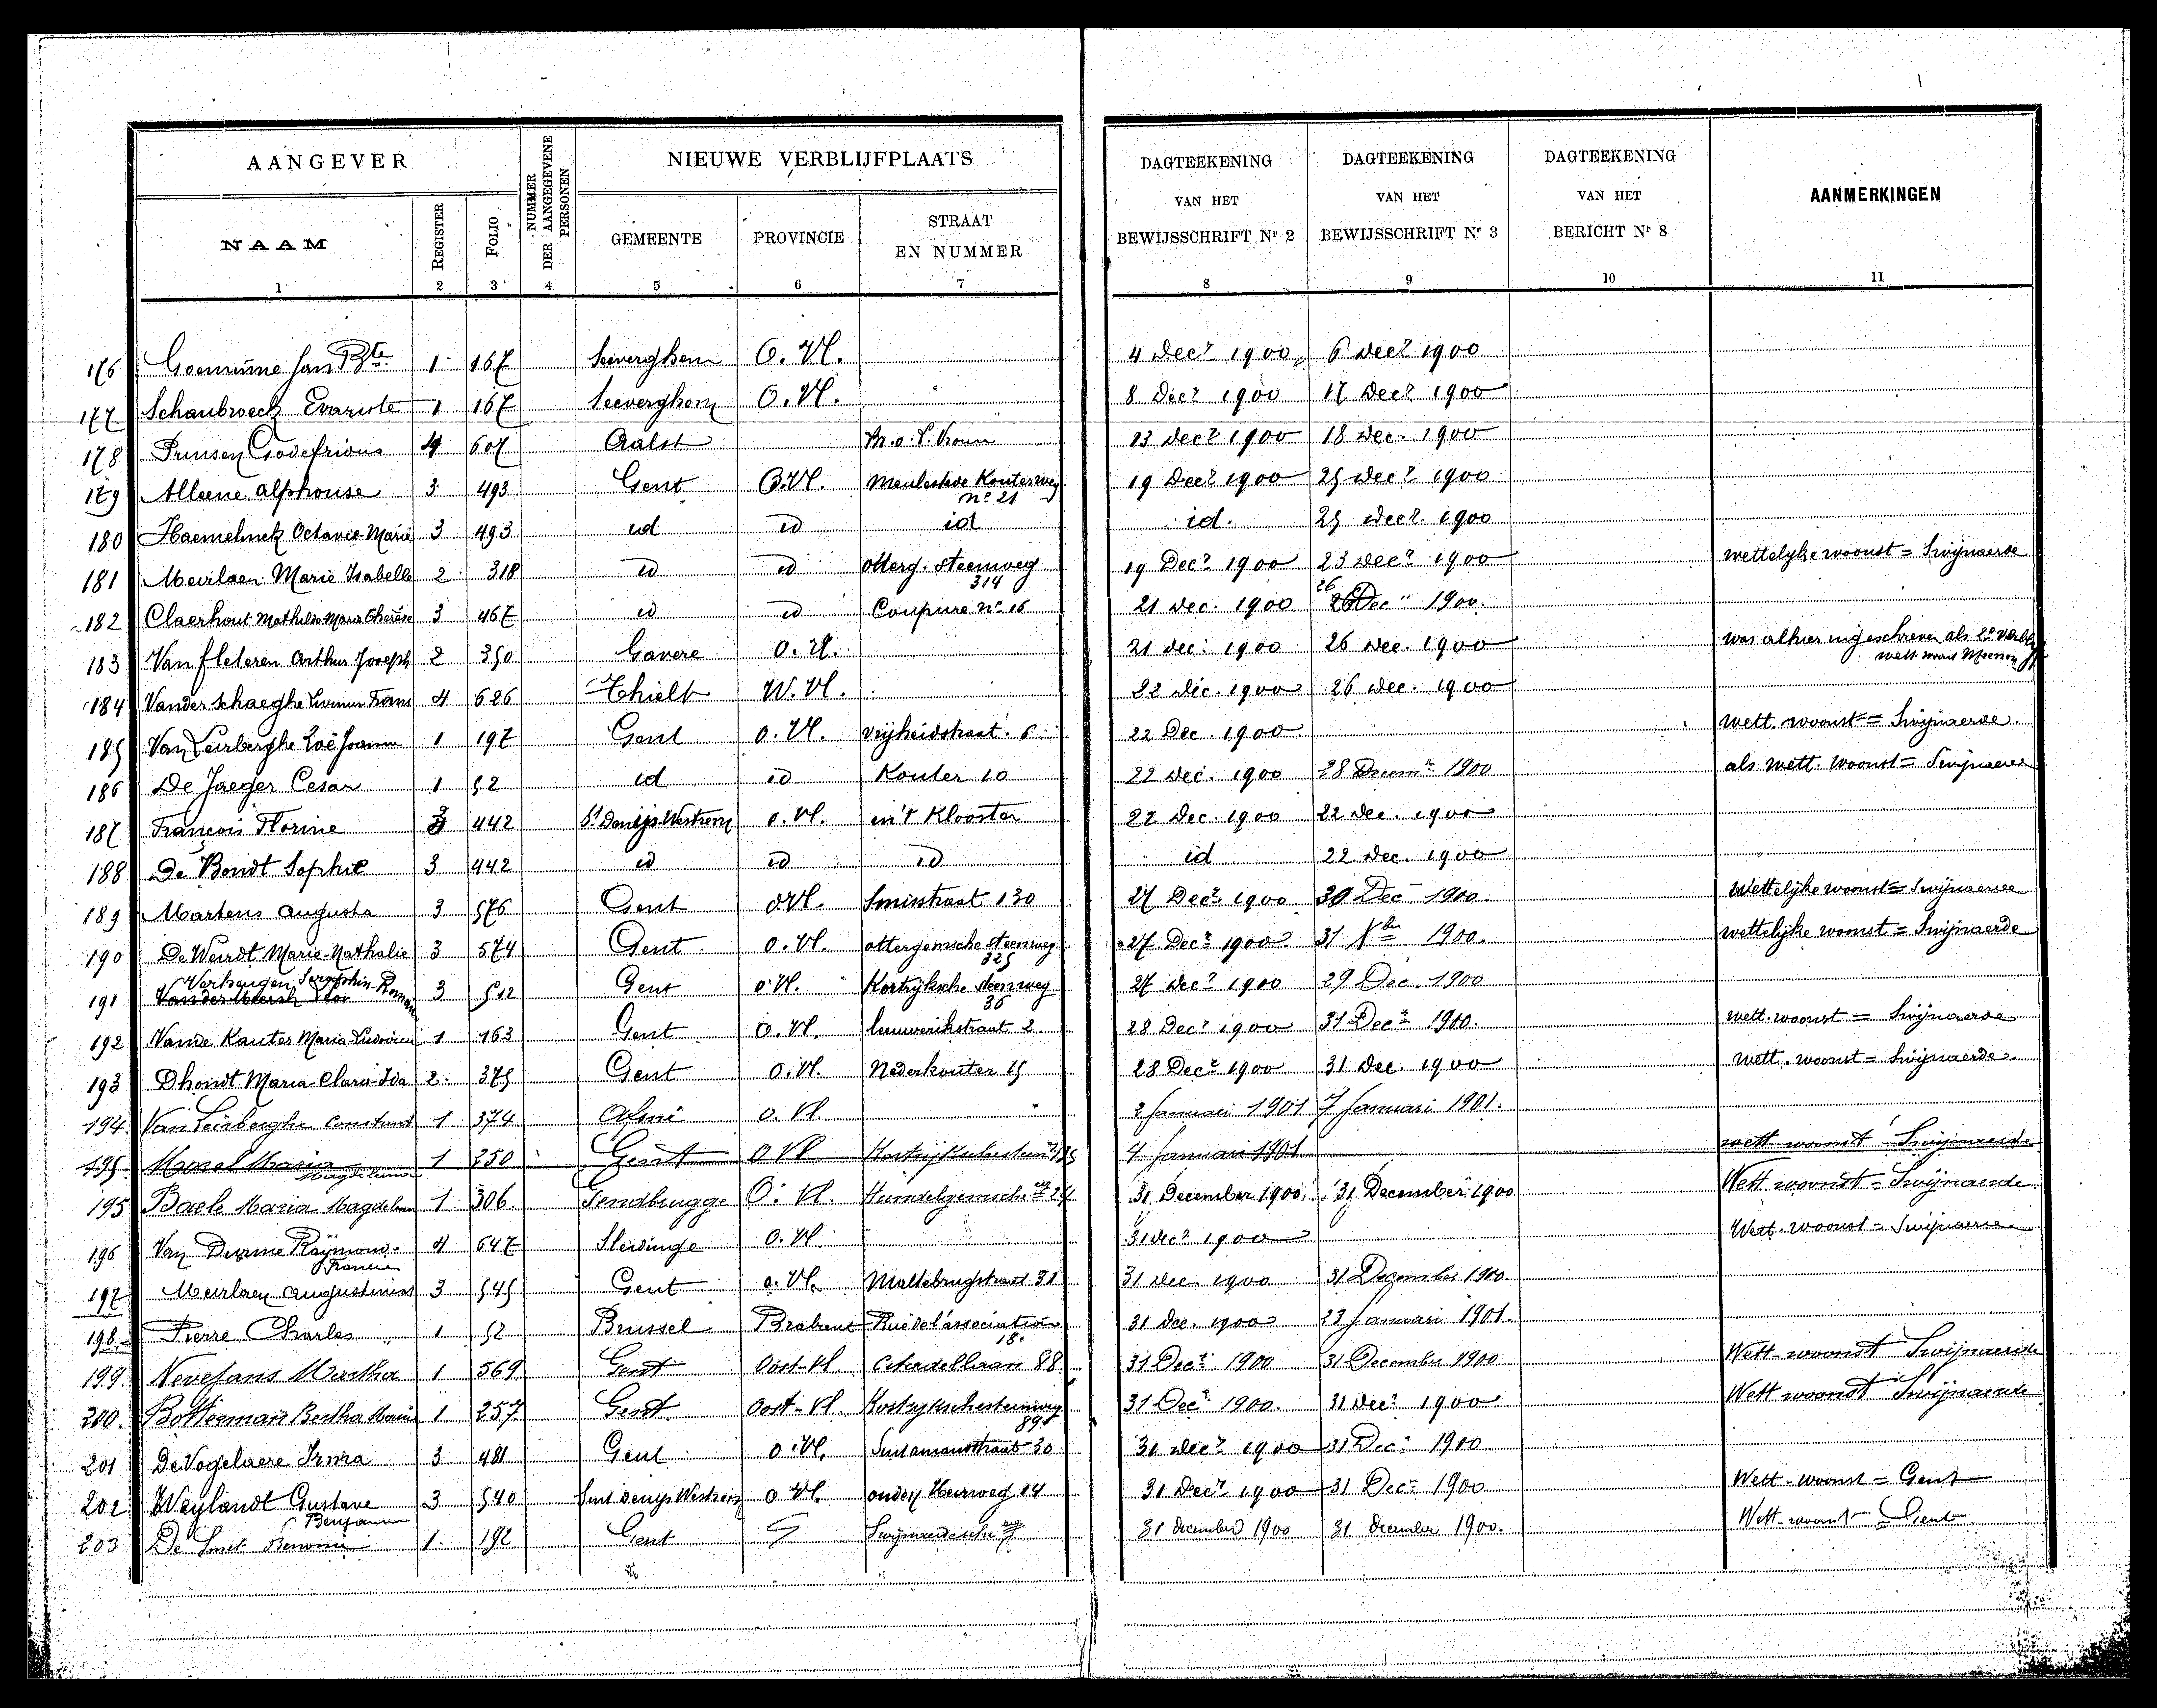 AANGEVER
NIEUWE VERBLIJFPLAATS
DAGTEEKENING VAN HET BEWIJSSCHRIFT Nr 2
DAGTEEKENING VAN HET BEWIJSSCHRIFT Nr 3
DAGTEEKENING VAN HET BERICHT Nr 8
AANMERKINGEN
NAAM
REGISTER
FOLIO
NUMMER DER AANGEGEVENE PERSONEN
GEMEENTE
PROVINCIE
STRAAT EN NUMMER
1 2 3 4 5 6 7 8 9 10 11
176 Jan Bte 1 167 Seeverghem O. Vl. 4 Decr 1900 6 Decr 1900
177 Schaubroeck Evariste 1 167 Seeverghem O. Vl. " 8 Decr 1900 17 Decr 1900
178 Prinsen Godefridus 4 607 Aalst 13 Decr 1900 18 Dec. 1900
179 Alleene Alphonse 3 493 Gent O.Vl. Meulestede Kouterweg no 21 19 Decr 1900 25 Decr 1900
180 Haemelinck Octavie Marie 3 493 id id id id. 25 Decr 1900
181 Meirlaen Marie Isabelle 2 318 id id otterg. steenweg 314 19 Decr 1900 23 Decr 1900 wettelyke woonst = Swijnaerde
182 Claerhout Mathilde Marie Thérèse 3 467 id id Coupure no 16 21 Dec. 1900 26 Dec 1900.
183 Van fleteren Arthur Joseph 2 350 Gavere O. Vl. 21 dec. 1900 26 Dec. 1900 was alhier ingeschreven als 2e verbl. wett. woonst Meenen
184 Vander schaeghe Livinus Frans 4 626 Thielt W. Vl. 22 dec. 1900 26 dec. 1900
185 Van Leirberghe Zoë Joanna 1 197 Gent O. Vl. vrijheidstraat 6 22 Dec. 1900 wett. woonst = Swijnaerde
186 De Jaeger Cesar 1 52 id id Kouter 10 22 Dec. 1900 28 Decemr 1900 als wett. woonst = Swijnaerde
187 François Florine 3 442 St Denijs-Westrem O. Vl. in't Klooster 22 Dec. 1900 22 Dec. 1900
188 De Bondt Sophie 3 442 id id id id 22 Dec. 1900
189 Martens Augusta 3 576 Gent O.Vl. Smisstraat 130 27 Decr 1900 30 Dec 1900. Wettelijke woonst = Swijnaerde
190 De Weirdt Marie-Nathalie 3 574 Gent O. Vl. ottergemsche steenweg 325 27 Decr 1900 31 Xber 1900. wettelijke woonst = Swijnaerde
191 Verheugen Seraphin-Roman 3 512 Gent O.Vl. Kortrijksche steenweg 36 27 Decr 1900 29 Dec. 1900
192 Vande Kauter Maria-Ludovica 1 163 Gent O. Vl. leeuwerikstraat 2 28 Decr 1900 31 Decr 1900. wett. woonst = Swijnaerde
193 Dhondt Maria Clara Ida 2 375 Gent O. Vl. Nederkouter 15 28 Decr 1900 31 Dec. 1900 wett. woonst = Swijnaerde
194. Van Leirberghe Constant 1 374 Afsné O. Vl. 2 Januari 1901 7 Januari 1901.
195 Morel Maria 1 250 Gent O Vl 4 Januari 1901 wett woonst = Swijnaerde
195 Baele Maria Magdelena 1 306 Gendbrugge O. Vl. 31 December 1900. 31 December 1900 Wett woonst = Swijnaerde.
196 Van Durme Raijmond Francies 4 647 Sleidinge O. Vl. 31 Decr 1900 Wett. woonst = Swijnaerde
197 Meirlaen Augustinus 3 545 Gent O. Vl. Maltebrugstraat 31 31 dec 1900 31 December 1900
198 Pierre Charles 1 52 Brussel Brabant Rue de l'association 18. 31 dec. 1900 23 Januari 1901.
199. Nevejans Martha 1 569 Gent Oost-Vl Citadellaan 88 31 Decr 1900 31 December 1900 Wett-woonst Swijnaerde
200. Botterman Bertha Maria 1 257 Gent Oost-Vl. Kortrykschesteenweg 89 31 Decr 1900. 31 Decr 1900 Wett woonst Swijnaerde
201 De Vogelaere Irma 3 481 Gent O. Vl. Sint amanstraat 30 31 Decr 1900 31 Decr 1900
202 Weylandt Gustave Benjamin 3 540 Sint denys Westrem O. Vl. ouden Heirweg 14 31 Decr 1900 31 Decr 1900 Wett-woonst = Gent
203 De Smet Benonie 1. 192 Gent Swijnaerdesche 31 december 1900 31 december 1900. Wett-woonst = Gent